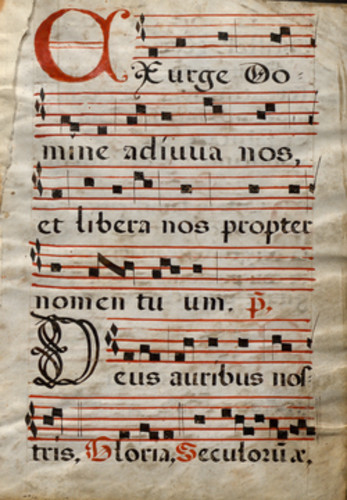 Exurge Do-
mine adiuua nos,
et libera nos propter
nomen tu um. p̄.
Deus auribus nos-
tris, Gloria, Seculorū æ.